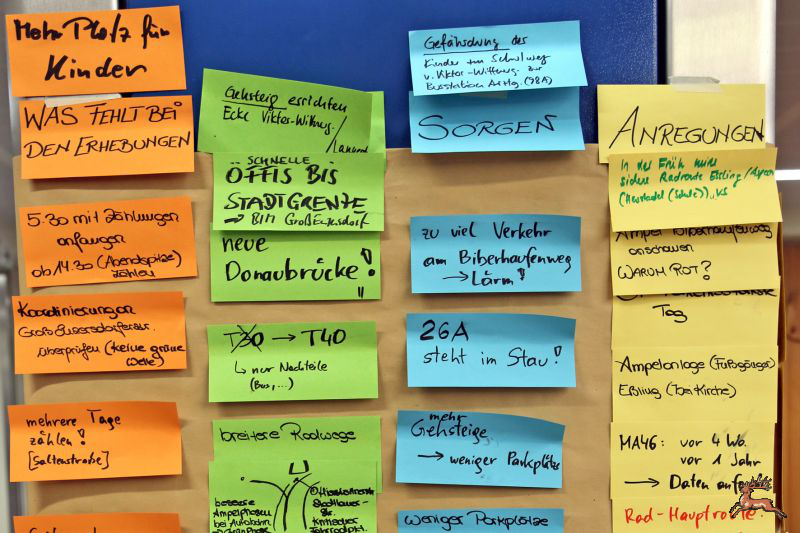 Mehr Platz für
Kinder
WAS FEHLT BEI
DEN ERHEBUNGEN
5:30 mit Zählungen
anfangen
ab 14:30 (Abendspitze)
zählen
Koordinierungen
überprüfen (keine grüne
Welle)
mehrere Tage
zählen!
Gehsteig errichten
Ecke
SCHNELLE
ÖFFIS BIS
STADTGRENZE
→ BIM Großenzersdorf
neue
Donaubrücke!
T30 → T40
↳ nur Nachteile
(Bus, ...)
breitere Radwege
bessere
Ampelphasen
bei Autobahn
Gefährdung der
Kinder am Schulweg
v. Viktor-Wittnerg. zur
SORGEN
zu viel Verkehr
am Biberhaufenweg
→ Lärm!
26A
steht im Stau!
mehr
Gehsteige
→ weniger Parkplätze
weniger Parkplätze
ANREGUNGEN
In der Früh keine
sichere Radroute Eßling/Aspern
Ampel Biberhaufenweg
anschauen
WARUM ROT?
Tag
Ampelanlage (Fußgänger)
Eßling
MA46: vor 4 Wo.
vor 1 Jahr
→ Daten
Rad-Hauptroute!